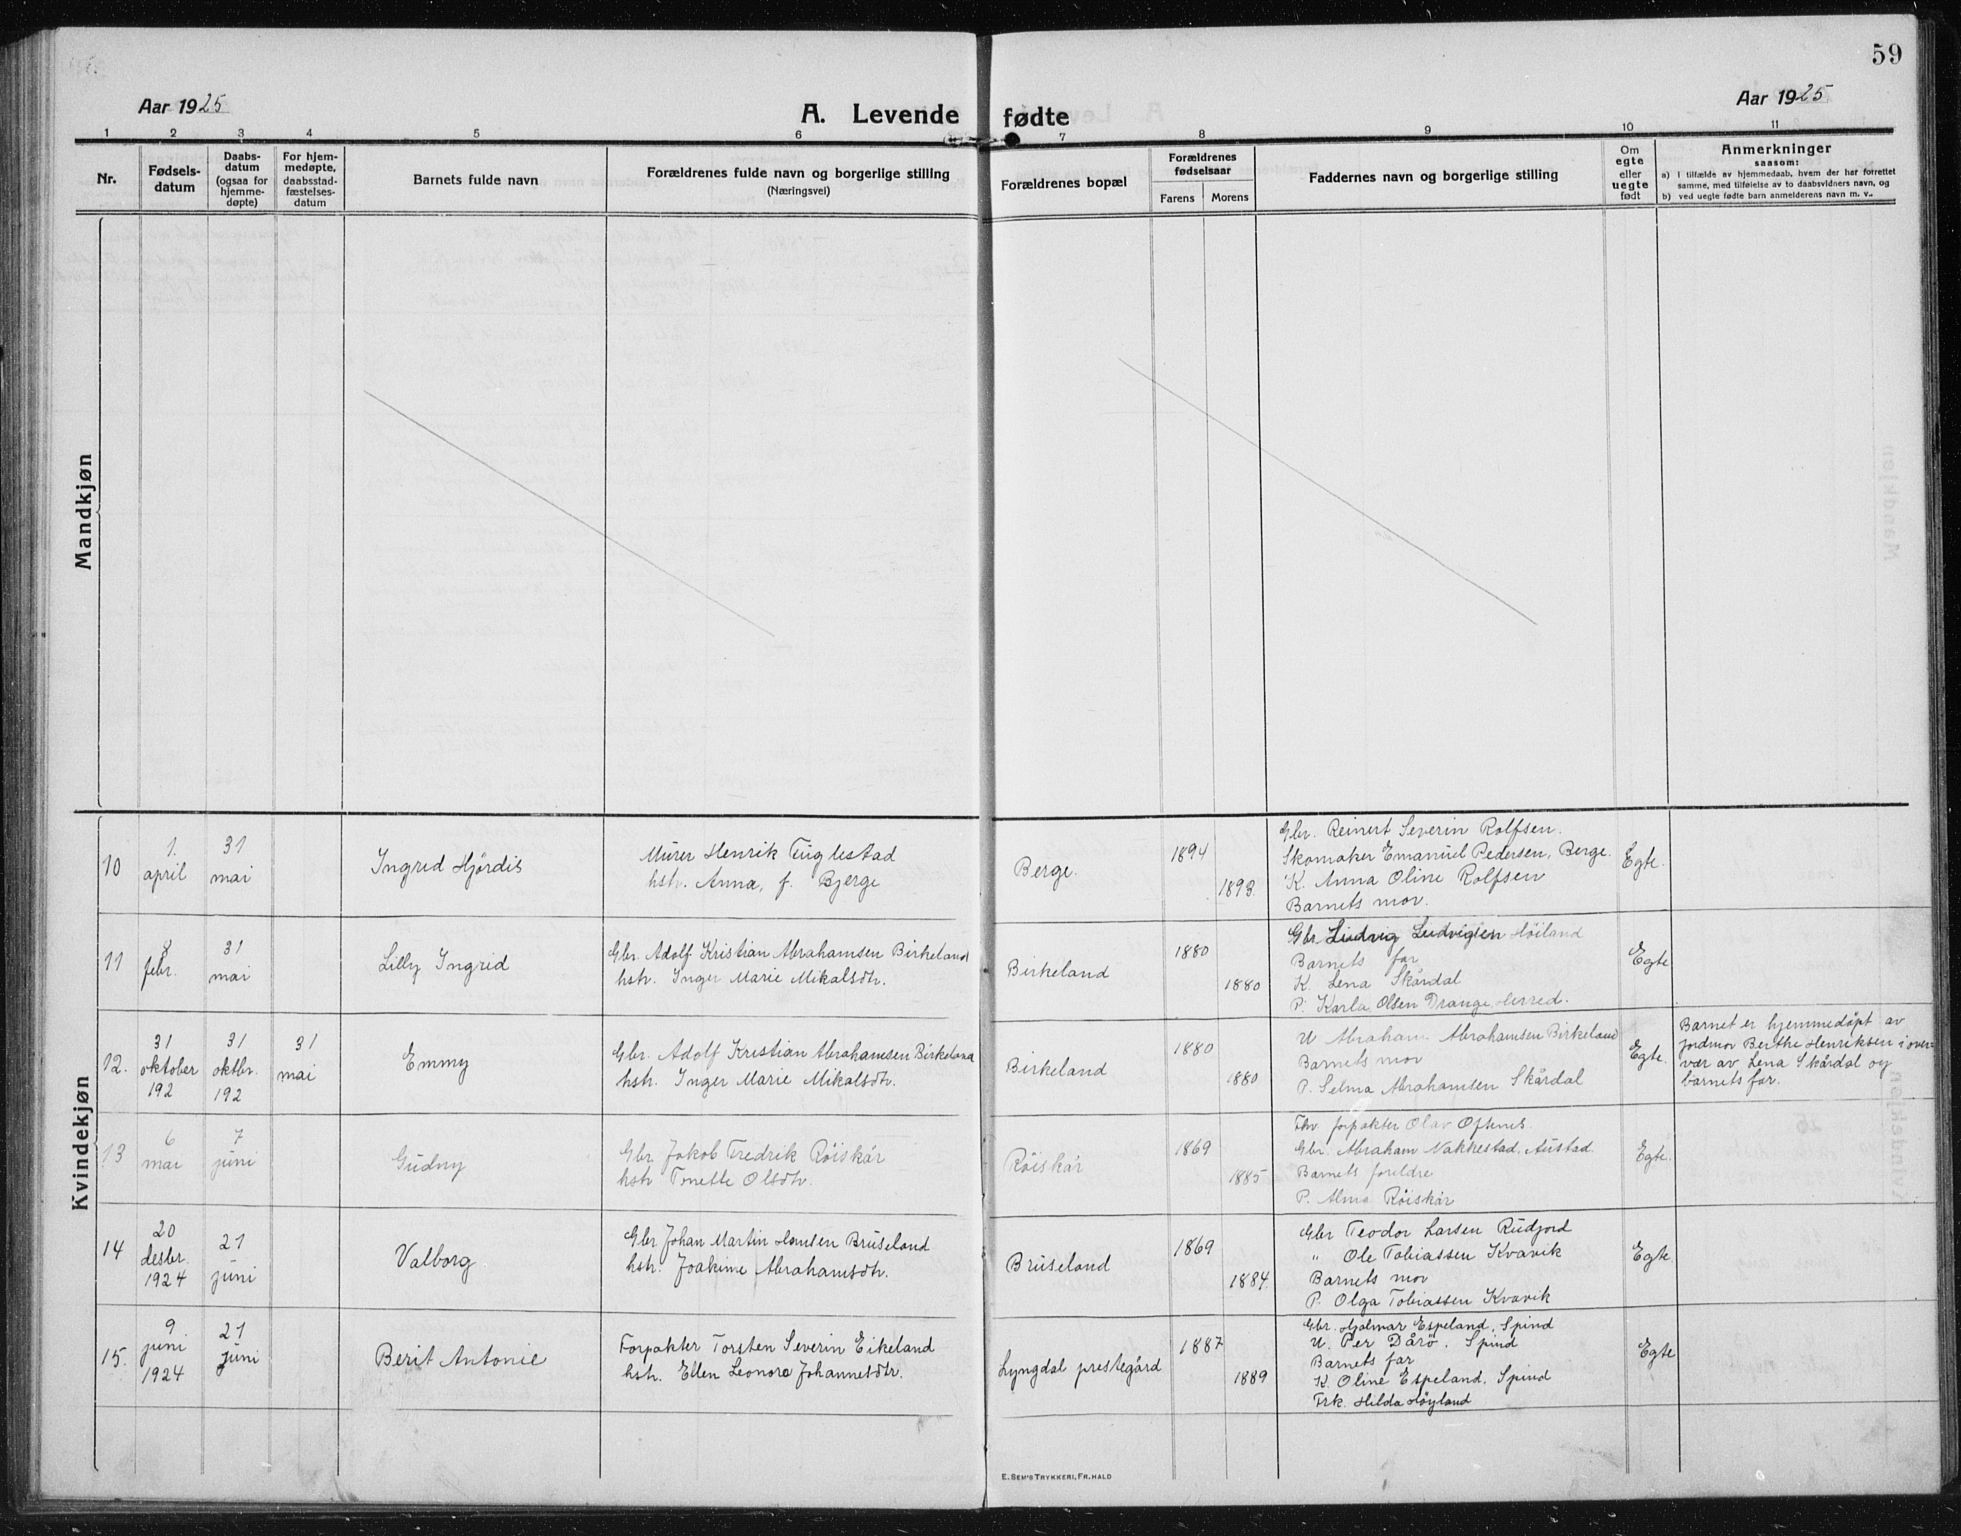 59
Aar 1925
A. Levende fødte
Aar 1925
1 2 3 4 5 6 7 8 9 10 11
Nr.
Fødsels-
datum
Daabs-
datum
(ogsaa for
hjemme-
døpte)
For hjem-
medøpte,
daabsstad-
fæstelses-
datum
Barnets fulde navn
Forældrenes fulde navn og borgerlige stilling
(Næringsvei)
Forældrenes bopæl
Forældrenes
fødselsaar
Farens Morens
Faddernes navn og borgerlige stilling
Om
egte
eller
uegte
født
Anmerkninger
saasom:
a) I tilfælde av hjemmedaab, hvem der har forrettet
samme, med tilføielse av to daabsvidners navn, og
b) ved uegte fødte barn anmelderens navn m. v..
Mandkjøn
Kvindekjøn
10
1.
april
31
mai
Ingrid Hjørdis
Murer Henrik Fuglestad
hstr. Anna, f. Bjerge
Berge.
1894
1893.
Gbr. Reinert Severin Rolfsen.
Skomaker Emanuel Pedersen, Berge.
K. Anna Oline Rolfsen
Barnets mor.
Egte.
11
8
febr.
31
mai
Lilly Ingrid
Gbr. Adolf Kristian Abrahamsen Birkeland
hstr. Inger Marie Mikalsdtr.
Birkeland
1880
1880
Gbr. Ludvig Ludvigsen Høiland
Barnets far
K. Lena Skårdal
P. Karla Olsen Drange Herred.
Egte
12.
31
oktober
192
31
oktbr.
192
31
mai
Emmy
Gbr. Adolf Kristian Abrahamsen Birkeland
hstr. Inger Marie Mikalsdtr.
Birkeland
1880
1880
U Abraham Abrahamsen Birkeland
Barnets mor
P. Selma Abrahamsen Skårdal
Egte.
Barnet er hjemmedøpt av
jordmor Berthe Henriksen i over-
vær av Lena Skårdal og
barnets far.
13
6
mai
7
juni
Gudny
Gbr Jakob Fredrik Röiskår
hstr Tonette Olsdtr.
Röiskår
1869
1885
Fhv. forpakter Olav Oftenes.
Gbr. Abraham Nakkestad, Austad.
Barnets foreldre
P. Alma Röiskår
Egte.
14
20
desbr.
1924
21
juni
Valborg
Gbr Johan Martin Hansen Bruseland
hstr. Joakime Abrahamsdtr.
Bruseland
1869
1884
Gbr Teodor Larsen Rudjord
" Ole Tobiassen Kvavik
Barnets mor
P. Olga Tobiassen Kvavik
Egte
15.
9
juni
1924
21
juni
Berit Antonie
Forpakter Torsten Severin Eikeland
hstr. Ellen Leonora Johannesdtr.
Lyngdal prestegård
1887
1889
Gbr. Hjalmar Espeland, Spind
U. Per Dårø, Spind
Barnets far
K. Oline Espeland, Spind
Frk. Hilda Høyland
Egte
E. Sem's Trykkeri, Fr.hald